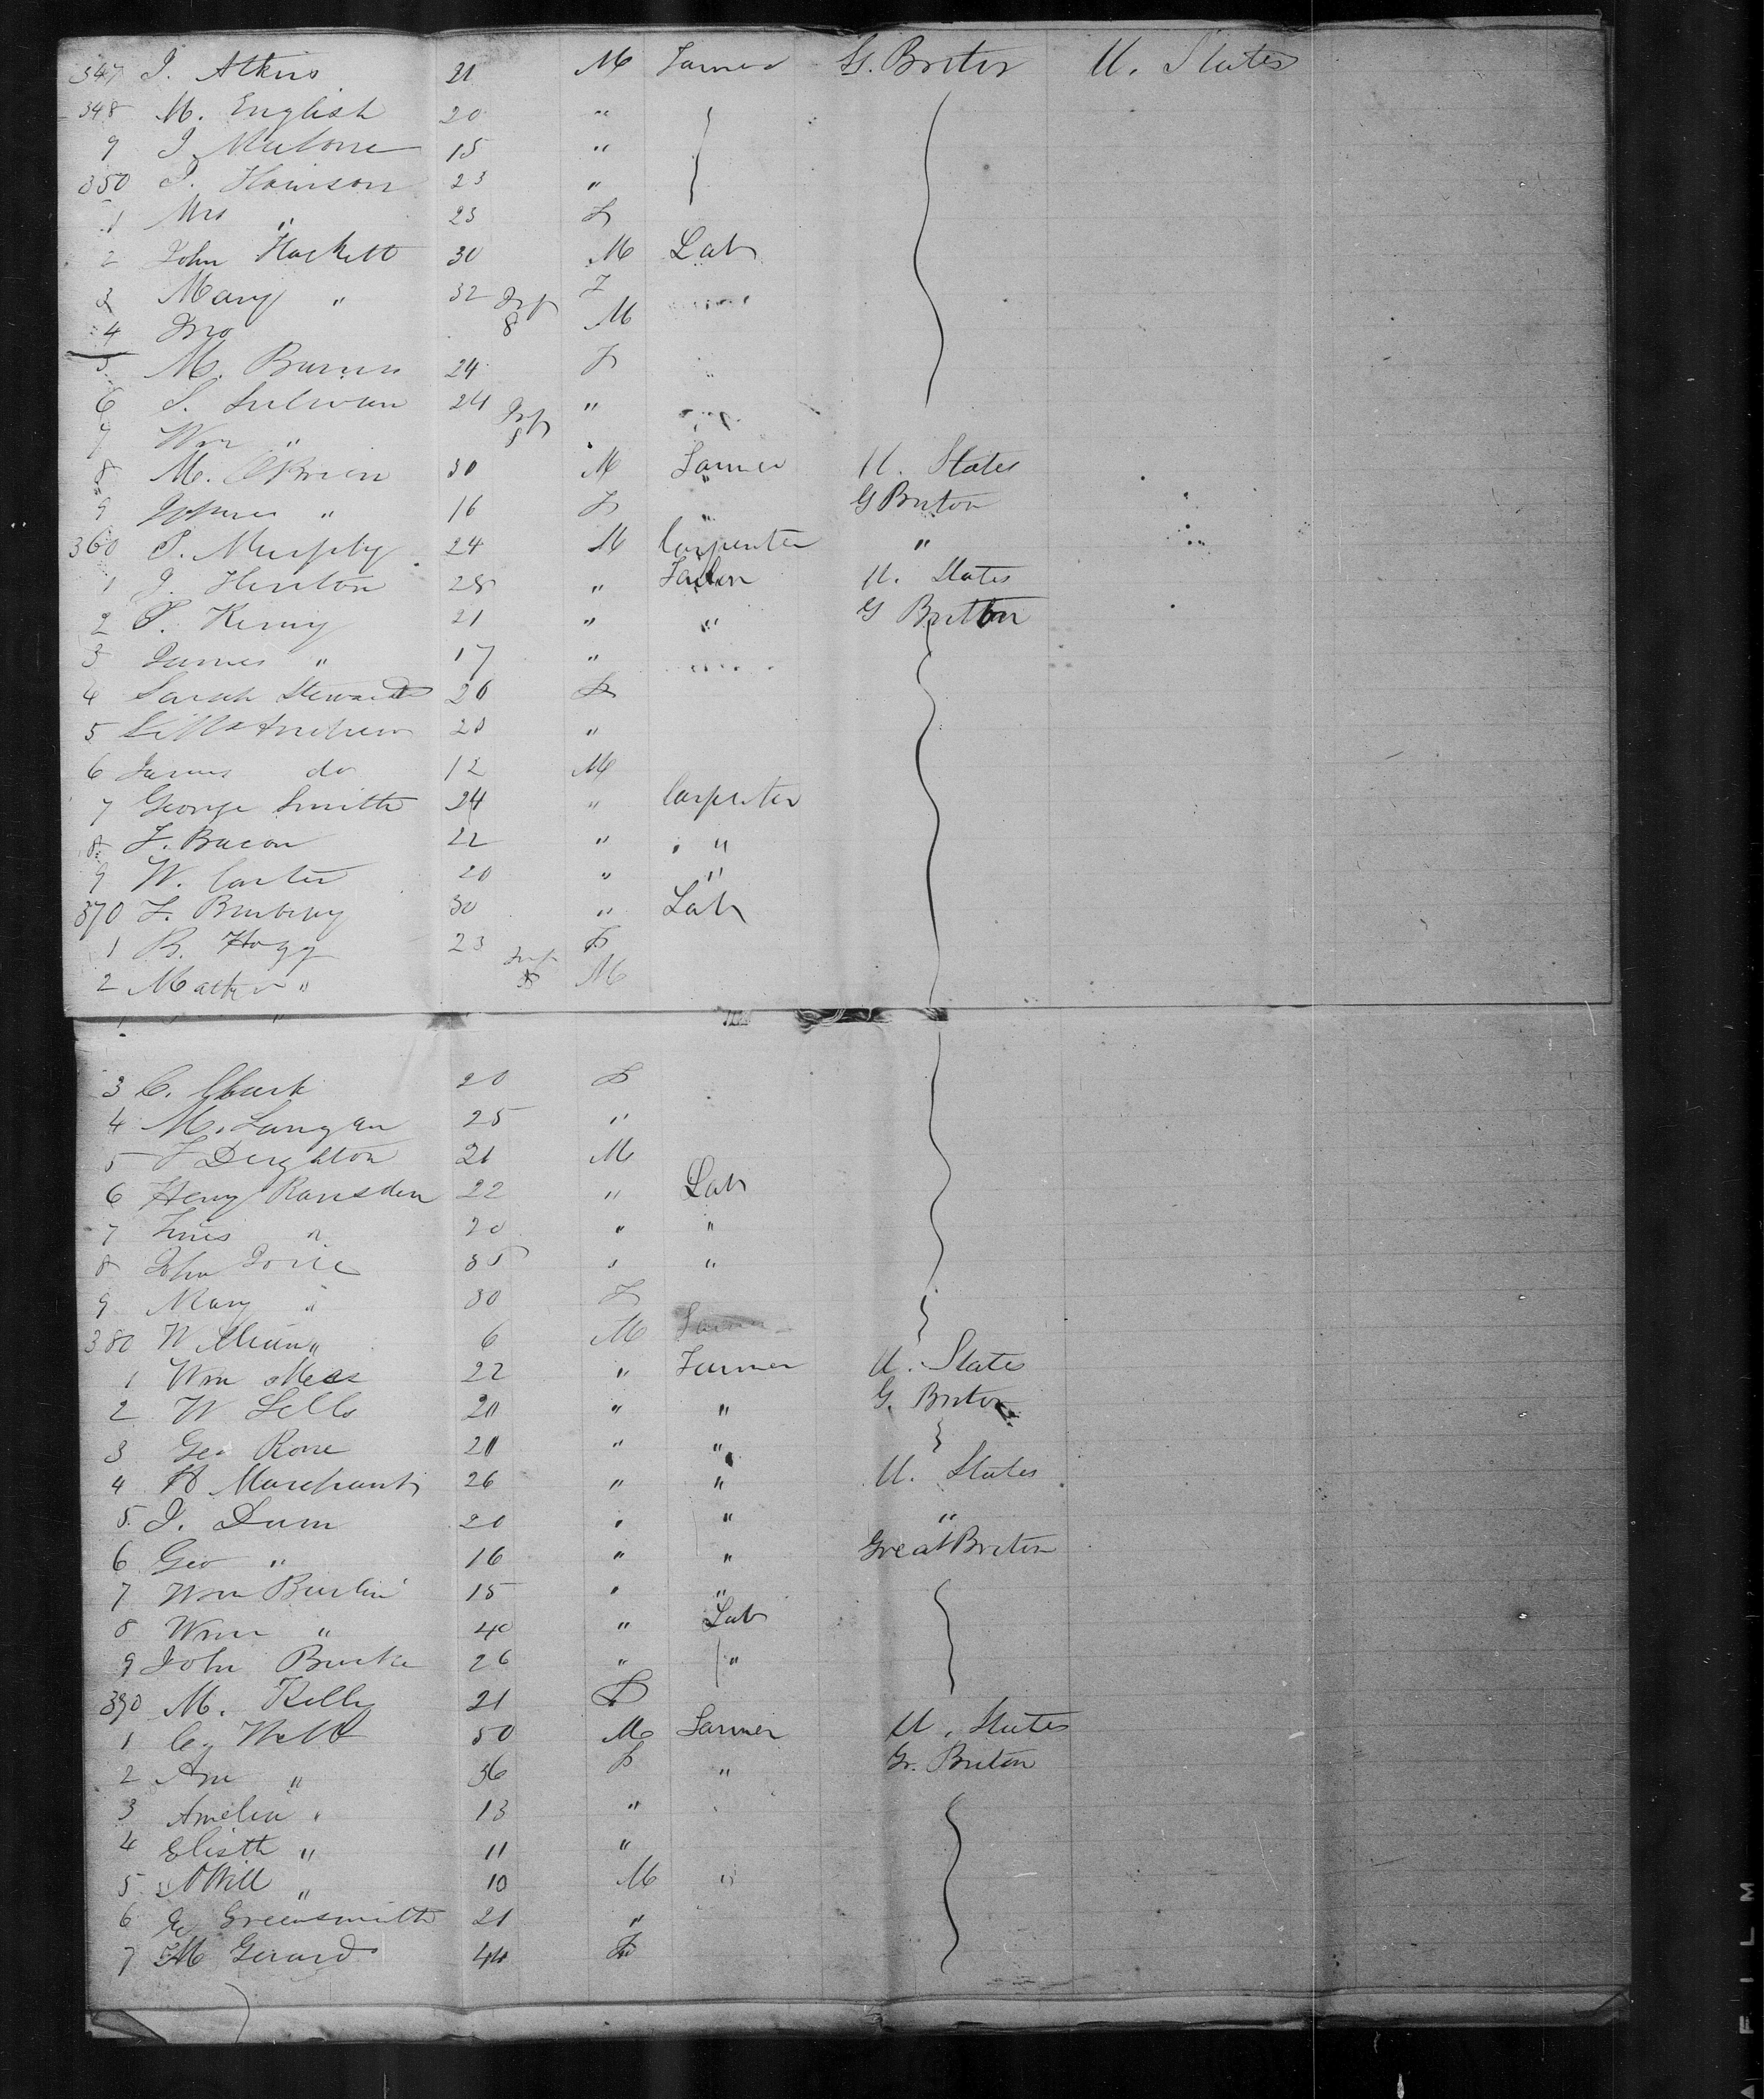 347 J. Atkins 21 M Farmer G. Briton U. States
348 M. English 20 "
9 J Malone 15 "
350 J. Harrison 23 "
1 Mrs " 23 F
2 John Hackett 30 M Lab
3 Mary " 32 F
4 Jno Inf 8 M
5 M. Burns 24 F
6 S. Sulivan 24 "
7 Wm " Inf 8
8 M. OBrien 30 M Farmer U. States
9 " 16 F " G Briton
360 P. Murphy 24 M Carpenter "
1 J. Hinton 25 " U. States
2 P. Kenny 21 " " G Briton
3 James " 17 "
4 Sarah Steward 26 F
5 "
6 James do 12 M
7 George Smith 24 " Carpenter
8 F. Bacon 22 " "
9 W. Carter 20 " "
370 F. 30 " Lab
1 B. Hogg 23 F
2 Mathew " Inf M
3 C. Clark 20 F
4 M. Langan 25 "
5 Deighton 21 M
6 Heny Ramsden 22 " Lab
7 " 20 " "
8 John 35 " "
9 Mary " 30 F
380 William " 6 M
1 Wm 22 " Farmer U. States
2 W Sells 20 " " G. Briton
3 Geo Rone 20 " "
4 H Marchant 26 " " U. States
5 J. Dunn 20 " " "
6 Geo " 16 " " Great Briton
7 Wm 15 " "
8 Wm " 40 " Lab
9 John Burke 26 " "
390 M. Kelly 21 F
1 C. Webb 50 M Farmer U. States
2 Ann " 36 F " Gr. Briton
3 Amelia " 13 "
4 Elisth " 11 "
5 Will " 10 M "
6 G Greensmith 21 "
7 M Gerard 44 F
FILM